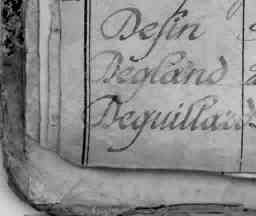 Desin
Degland
Deguillard